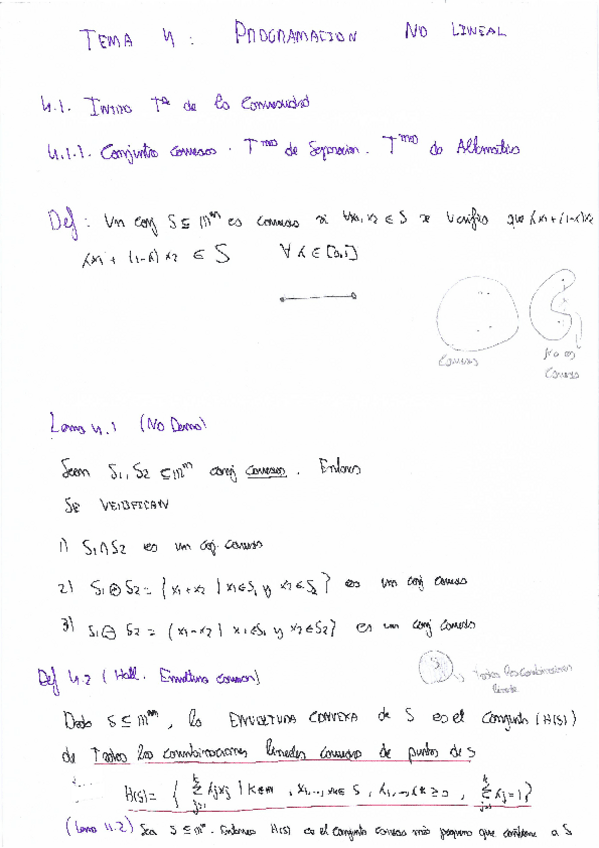 TEMA 4: PROGRAMACION NO LINEAL
4.1. Intro Tª de la Convexidad
4.1.1. Conjuntos convexos. Tmas de Separacion. Tmas de Alternativa
Def: Un conj S ⊆ ℝⁿ es convexo si ∀x1, x2 ∈ S se verifica que λx1 + (1-λ)x2
λx1 + (1-λ)x2 ∈ S ∀ λ ∈ [0,1]
Convexo
no es
Convexo
Lema 4.1 (No Demo)
Sean S1, S2 ⊆ ℝⁿ conj convexos. Entonces
SE VERIFICAN
1) S1 ∩ S2 es un conj. convexo
2) S1 ⊕ S2 = { x1 + x2 | x1 ∈ S1 y x2 ∈ S2 } es un conj convexo
3) S1 ⊖ S2 = { x1 - x2 | x1 ∈ S1 y x2 ∈ S2 } es un conj convexo
Def 4.2 (Hull. Envoltura convexa)
S
Todas las combinaciones
Dado S ⊆ ℝⁿ, la ENVOLTURA CONVEXA de S es el conjunto (H(S))
de Todas las combinaciones lineales convexas de puntos de S
H(S) = { Σ λj xj | k ∈ ℕ, x1, ..., xk ∈ S, λ1, ..., λk ≥ 0, Σ λj = 1 }
(Lema 4.2) Sea S ⊆ ℝⁿ. Entonces H(S) es el conjunto convexo más pequeño que contiene a S